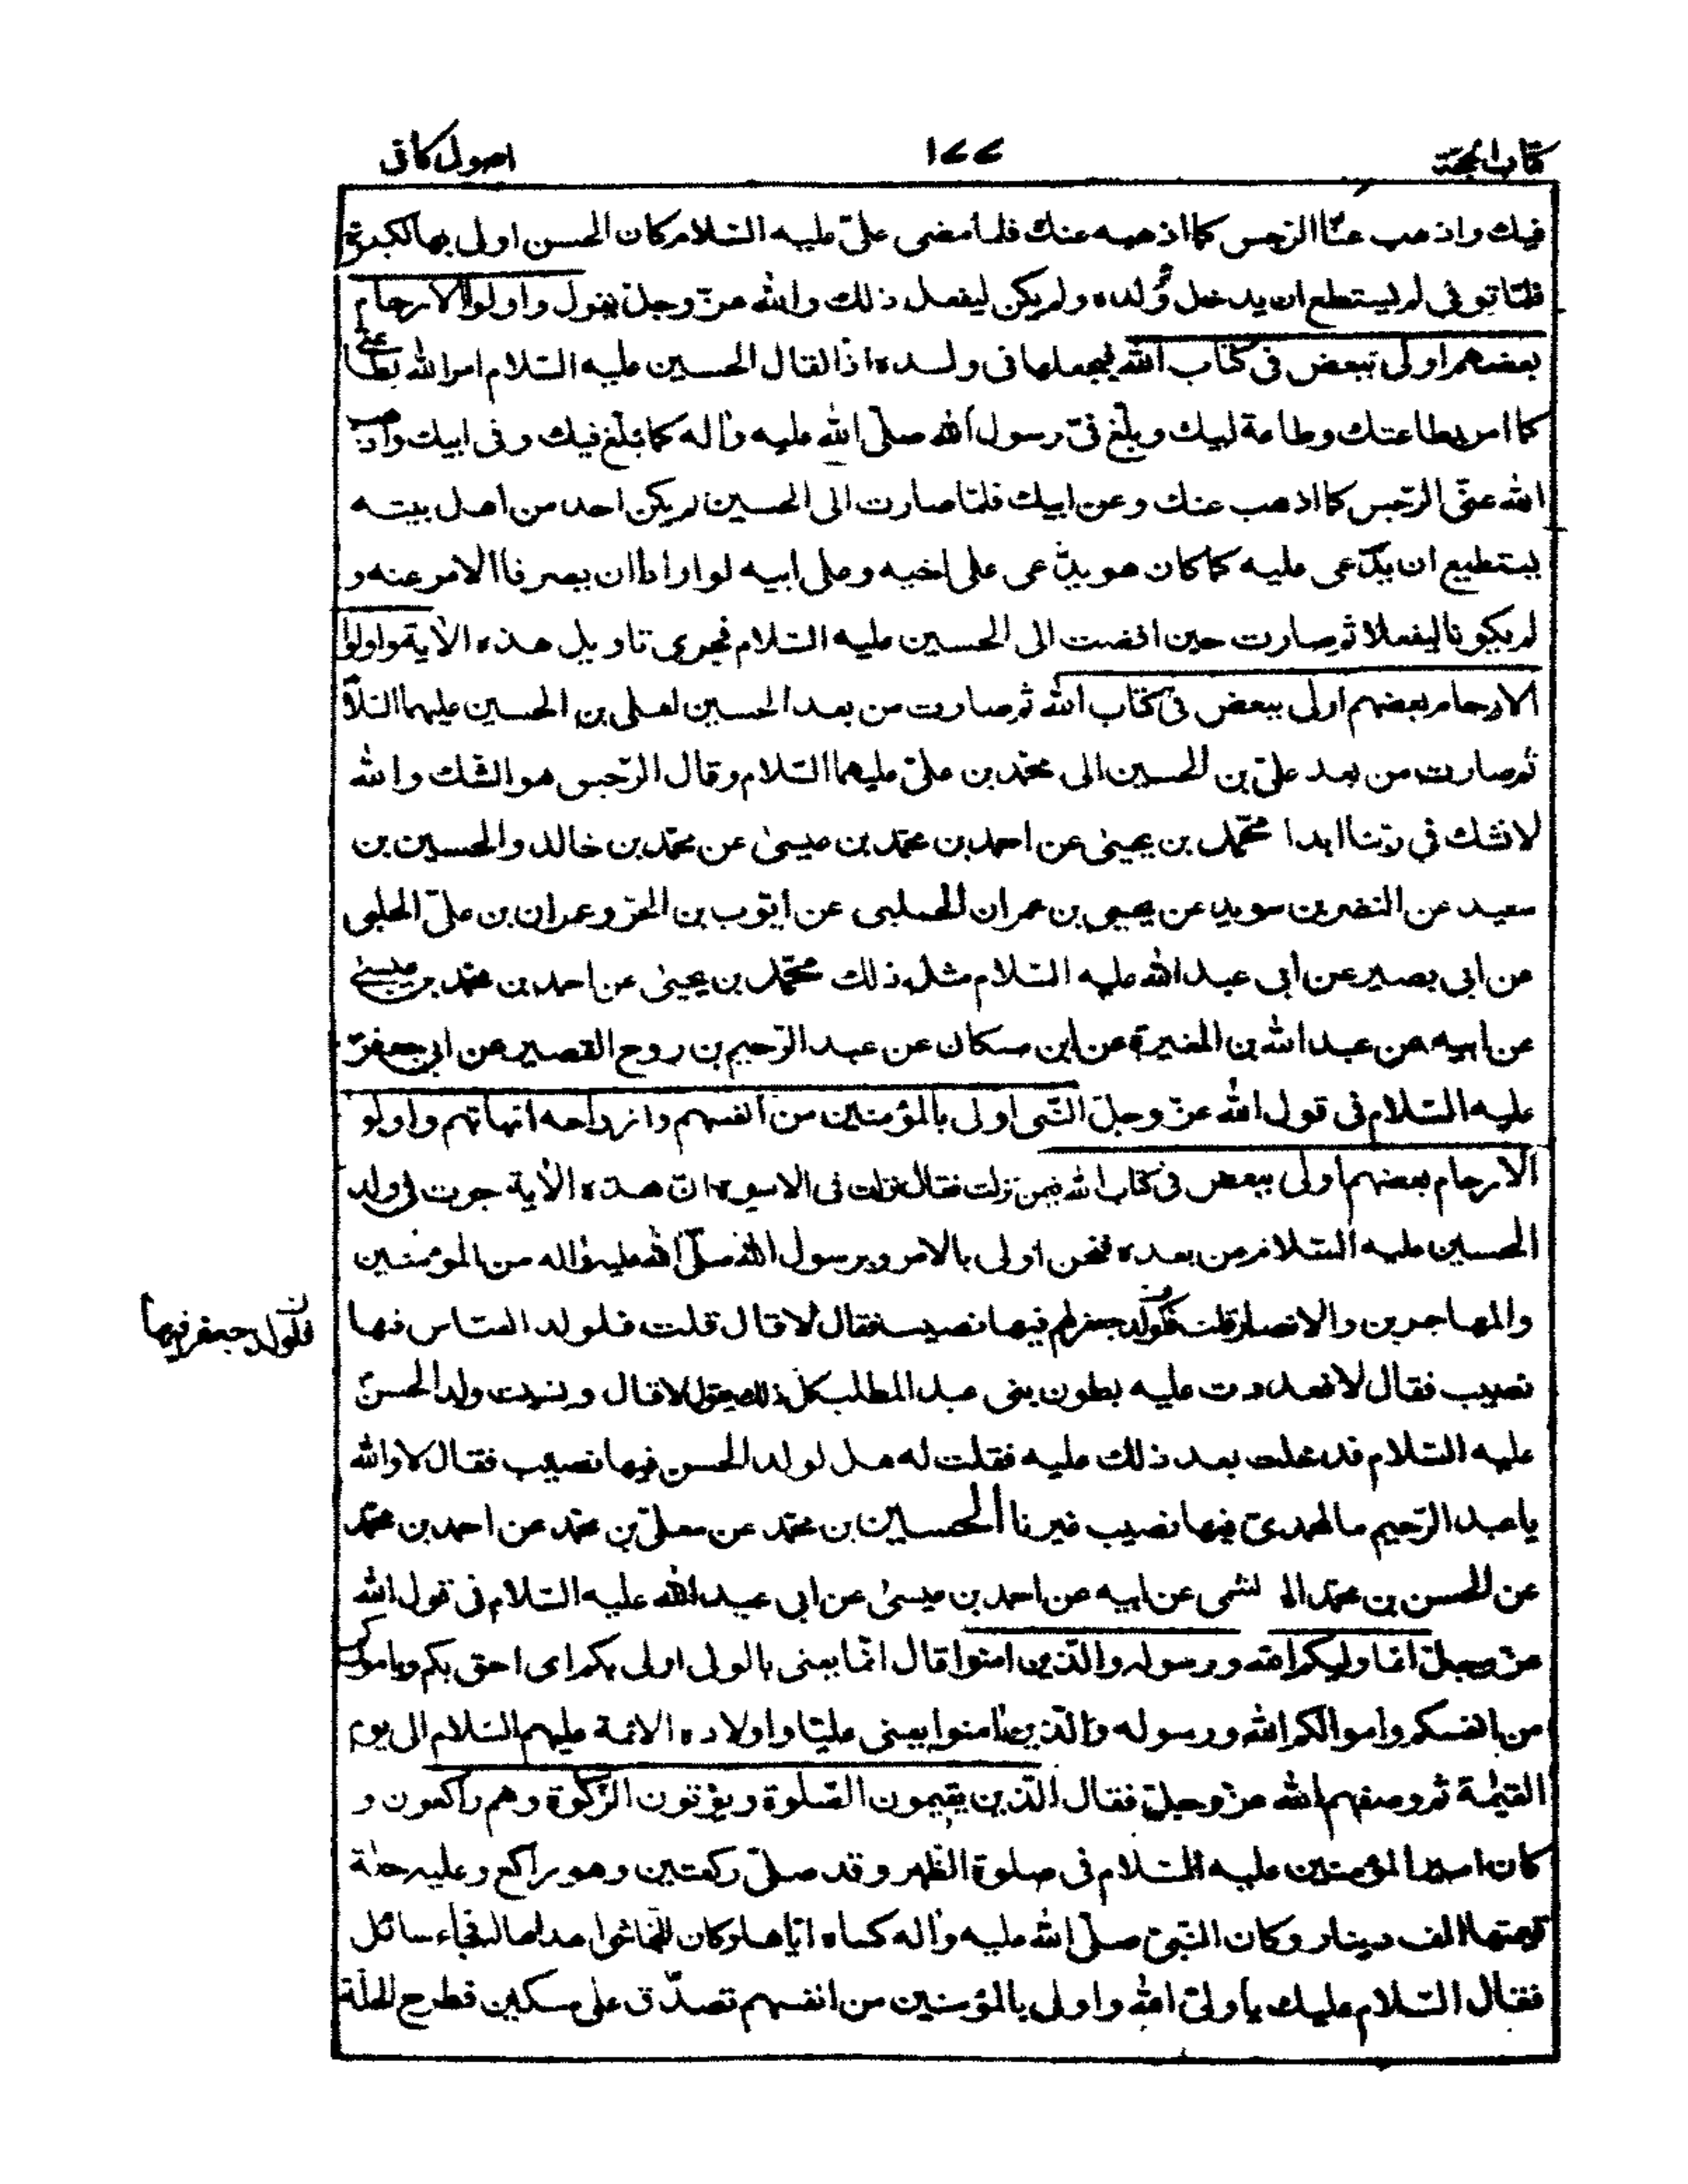 كتاب الحجة ١٧٧ اصول كافى
فيك واذهب عنّا الرجس كما اذهبه عنك فلما مضى علىّ عليه السّلام كان الحسن اولى بها لكبره
فلمّا توفى لم يستطع ان يدخل وُلده ولم يكن ليفعل ذلك والله عزّ وجلّ يقول واولوا الارحام
بعضهم اولى ببعض فى كتاب الله فيجعلها فى ولده اذًا لقال الحسين عليه السّلام امر الله بطاعتى
كما امر بطاعتك وطاعة ابيك وبلّغ فىّ رسول الله صلّى الله عليه واٰله كما بلّغ فيك وفى ابيك واذهب
الله عنّى الرّجس كما اذهب عنك وعن ابيك فلمّا صارت الى الحسين لم يكن احد من اهل بيته
يستطيع ان يدّعى عليه كما كان هو يدّعى على اخيه وعلى ابيه لو ارادا ان يصرفا الامر عنه و
لم يكونا ليفعلا ثم صارت حين افضت الى الحسين عليه السّلام فجرى تاويل هذه الاٰية واولوا
الارحام بعضهم اولى ببعض فى كتاب الله ثم صارت من بعد الحسين لعلى بن الحسين عليهما السّلام
ثم صارت من بعد علىّ بن الحسين الى محمّد بن علىّ عليهما السّلام وقال الرّجس هو الشّك والله
لا نشك فى ربّنا ابدا محمّد بن يحيىٰ عن احمد بن محمّد بن عيسىٰ عن محمّد بن خالد والحسين بن
سعيد عن النضر بن سويد عن يحيى بن عمران الحلبى عن ايّوب بن الحرّ وعمران بن علىّ الحلبى
عن ابى بصير عن أبى عبد الله عليه السّلام مثل ذلك محمّد بن يحيىٰ عن احمد بن محمّد بن عيسىٰ
عن ابيه عن عبد الله بن المغيرة عن ابن مسكان عن عبد الرّحيم بن روح القصير عن ابى جعفر
عليه السّلام فى قول الله عزّ وجلّ النّبى اولى بالمؤمنين من انفسهم وازواجه امّهاتهم واولو
الارحام بعضهم اولى ببعض فى كتاب الله فيمن نزلت فقال نزلت فى الامرة انّ هذه الاٰية جرت فى ولد
الحسين عليه السّلام من بعده فنحن اولى بالامر وبرسول الله صلّى الله عليه واٰله من المؤمنين
والمهاجرين والانصار قلت فلولد جعفر لهم فيها نصيب فقال لا قال قلت فلولد العبّاس فيها
فلولد جعفر فيها
نصيب فقال لا فعددت عليه بطون بنى عبد المطلب كل ذلك يقول لا قال ونسيت ولد الحسن
عليه السّلام فدخلت بعد ذلك عليه فقلت له هل لولد الحسن فيها نصيب فقال لا والله
يا عبد الرّحيم ما لمحمدىّ فيها نصيب غيرنا الحسين بن محمّد عن معلّى بن محمّد عن احمد بن محمّد
عن الحسن بن محمّد الهاشمى عن ابيه عن احمد بن عيسىٰ عن ابى عبد الله عليه السّلام فى قول الله
عزّ وجلّ انّما وليكم الله ورسوله والّذين اٰمنوا قال انّما يعنى بالولى اولى بكم اى احق بكم وباموركم
من انفسكم واموالكم الله ورسوله والّذين اٰمنوا يعنى عليّا واولاده الائمة عليهم السّلام الى يوم
القيٰمة ثم وصفهم الله عزّ وجلّ فقال الّذين يقيمون الصّلوة ويؤتون الزّكوة وهم راكعون و
كان امير المؤمنين عليه السّلام فى صلوة الظهر وقد صلّى ركعتين وهو راكع وعليه حلة
قيمتها الف دينار وكان النّبىّ صلّى الله عليه واٰله كساه ايّاها وكان النّجاشى اهداها له فجاء سائل
فقال السّلام عليك يا ولىّ الله واولى بالمؤمنين من انفسهم تصدّق على مسكين فطرح الحلّة